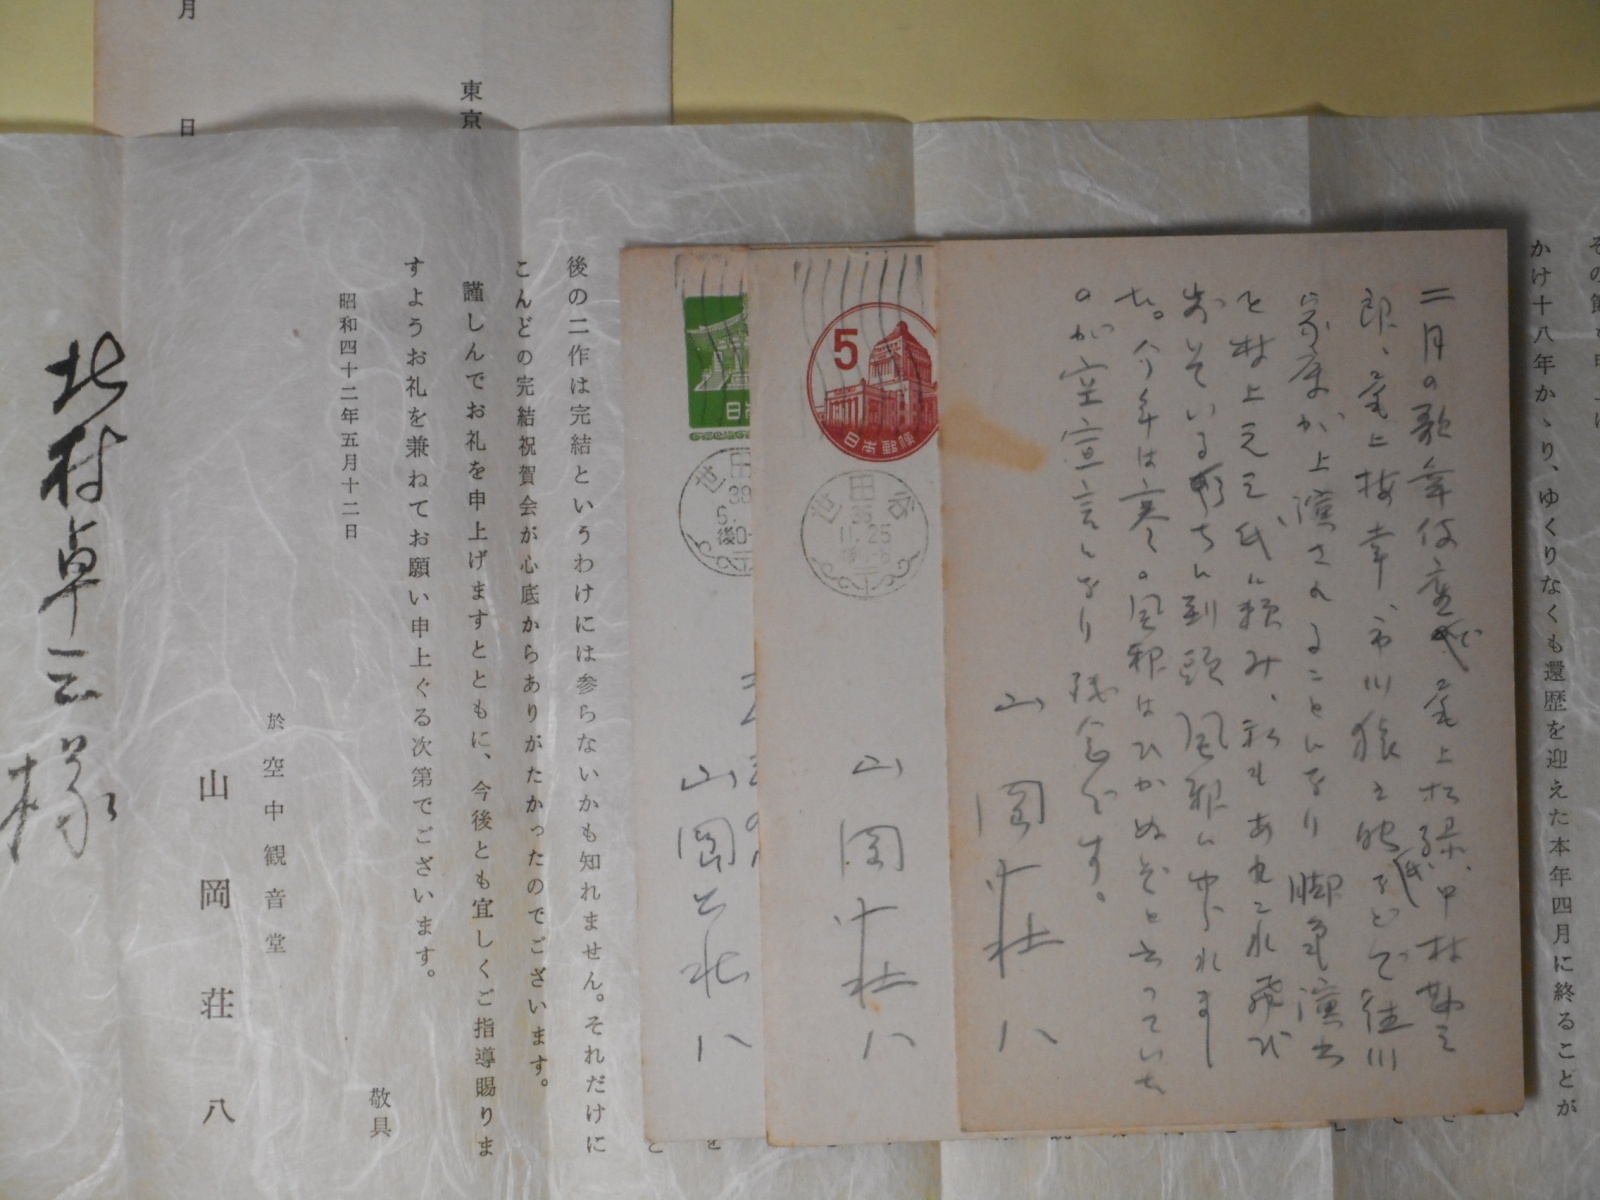 二月の歌舞伎座で尾上松緑、中村勘三
郎、尾上梅幸、市川猿之助氏などで徳川
家康が上演されることになり脚色演出
を村上元三氏に頼み、私もあれこれ飛び
歩いている内に到頭風邪にやられまし
た。今年は寒くの風邪はひかぬぞと云っていた
のが空宣言となり残念です。
山岡荘八
山岡荘八
山岡荘八
5
日本郵便
世田谷
35
11.25
世田
39
日本
その節
かけ十八年かゝり、ゆくりなくも還歴を迎えた本年四月に終ることが
後の二作は完結というわけには参らないかも知れません。それだけに
こんどの完結祝賀会が心底からありがたかったのでございます。
謹しんでお礼を申上げますとともに、今後とも宜しくご指導賜りま
すようお礼を兼ねてお願い申上ぐる次第でございます。
敬具
昭和四十二年五月十二日
於空中観音堂
山岡荘八
北村卓三様
東京
月日